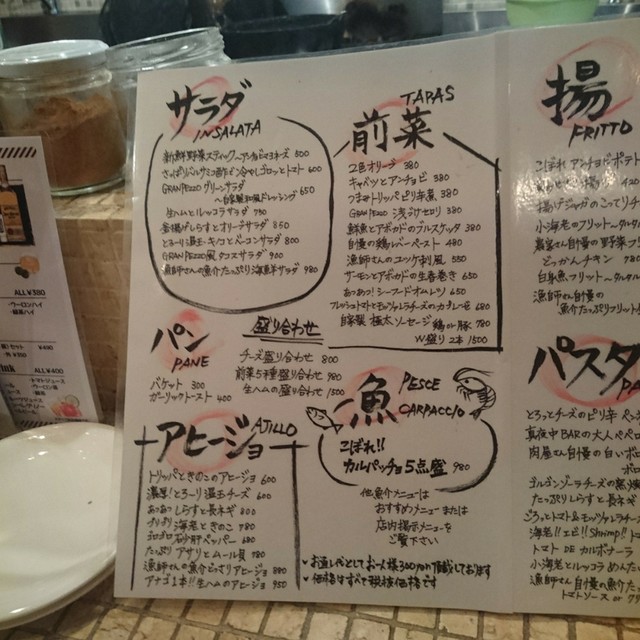 サラダ
INSALATA
新鮮野菜スティック〜アンチョビマヨネーズ 500
さっぱりバルサミコ酢で冷やしゴロッとトマト 600
GRANPEZZO グリーンサラダ
〜自家製和風ドレッシング 650
生ハムとルッコラサラダ 750
釜揚げしらすとオリーブサラダ 850
とろーり温玉・キノコとベーコンサラダ 800
GRANPEZZO風 タコスサラダ 900
漁師さんの魚介たっぷり海鮮サラダ 980
パン
PANE
バケット 300
ガーリックトースト 400
盛り合わせ
チーズ盛り合わせ 800
前菜5種盛り合わせ 980
生ハムの盛り合わせ 1500
アヒージョ
AJILLO
トリッパときのこのアヒージョ 600
濃厚!とろーり温玉チーズ 600
あぁっ しらすと長ネギ 800
プリプリ 海老ときのこ 780
コロコロ 砂肝ペッパー 680
たっぷり アサリとムール貝 980
漁師さんの魚介どっさりアヒージョ 880
アナゴ1本!!生ハムのアヒージョ 950
TAPAS
前菜
2色オリーブ 380
キャベツとアンチョビ 380
つまトリッパピリ辛煮 380
GRANPEZZO 浅づけセロリ 380
鮮魚とアボカドのブルスケッタ 380
自慢の鶏レバーペースト 480
漁師さんのユッケ刺風 550
サーモンとアボカドの生春巻き 650
あつあつ!シーフードオムレツ 650
フレッシュトマトとモッツァレラチーズのカプレーゼ 680
自家製 極太ソーセージ 鶏or豚 780
W盛り2本 1500
魚
PESCE
CARPACCIO
こぼれ!!
カルパッチョ5点盛 980
他魚介メニューは
おすすめメニューまたは
店内掲示メニューを
ご覧下さい
・お通しベとしてお一人様300yen頂戴しております
・価格はすべて税抜価格です
揚
FRITTO
こぼれアンチョビポテト
揚げジャガのこってりチ
小海老のフリット〜タルタル
農家さん自慢の野菜フ
どっかんチキン 780
白身魚フリット〜タルタル
漁師さん自慢の
魚介たっぷりフリット
パスタ
PA
とろっとチーズのピリ辛 ペ
真夜中BARの大人ペペロ
肉屋さん自慢の白いボ
ゴルゴンゾーラチーズの
たっぷりしらすと長ネギ
ごろっとトマト&モッツァレラチ
海老!!エビ!!Shrimp!!ト
トマト DE カルボナーラ
小海老とルッコラめんたい
漁師さん自慢の魚介たっ
トマトソース or
ALL¥380
・ウーロンハイ
・緑茶ハイ
セット ¥490
ALL¥400
トマトジュース
ウーロン茶
緑茶